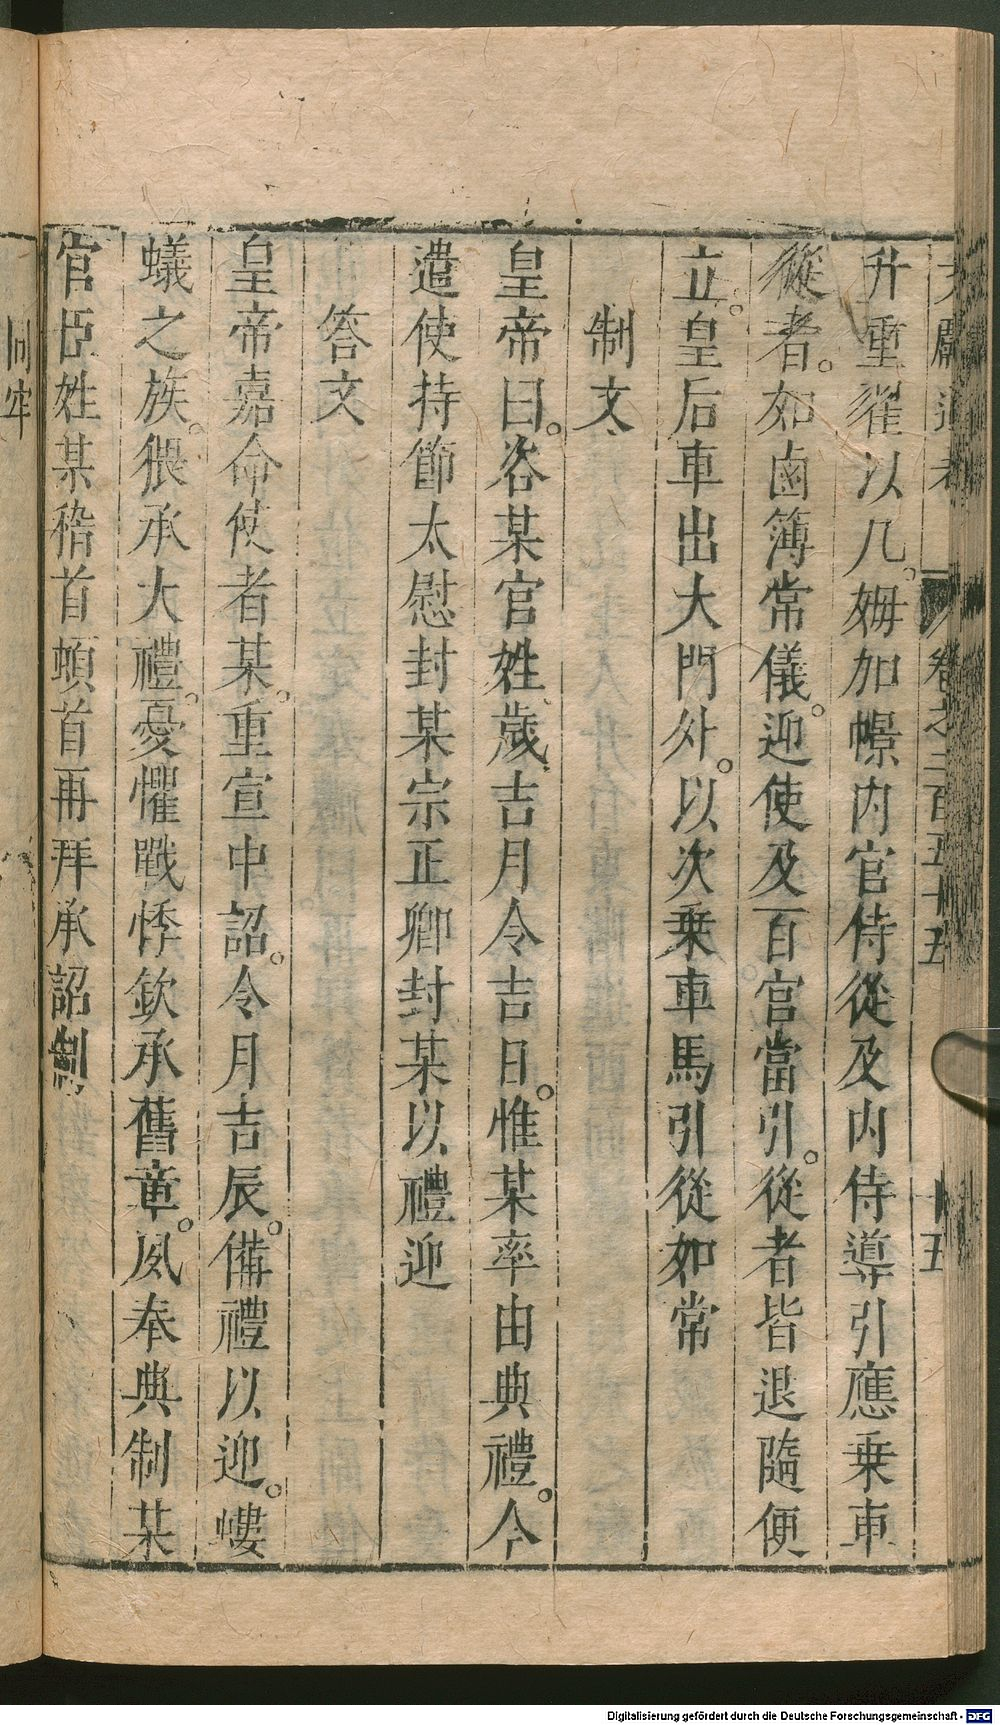 文獻通考 卷之二百五十五 十五
升重翟以几。姆加幜内官侍從及内侍導引應乗車
從者。如鹵簿常儀。迎使及百官當引。從者皆退隨便
立。皇后車出大門外。以次乗車馬引從如常
制文
皇帝曰。咨某官姓、歲吉月令吉日。惟某率由典禮。今
遣使持節太慰封某宗正卿封某以禮迎
答文
皇帝嘉命使者某。重宣中詔。令月吉辰。備禮以迎。螻
蟻之族。猥承大禮。憂懼戰悸欽承舊章。夙奉典制某
官臣姓某稽首頓首再拜承詔制
同牢
Digitalisierung gefördert durch die Deutsche Forschungsgemeinschaft - DFG